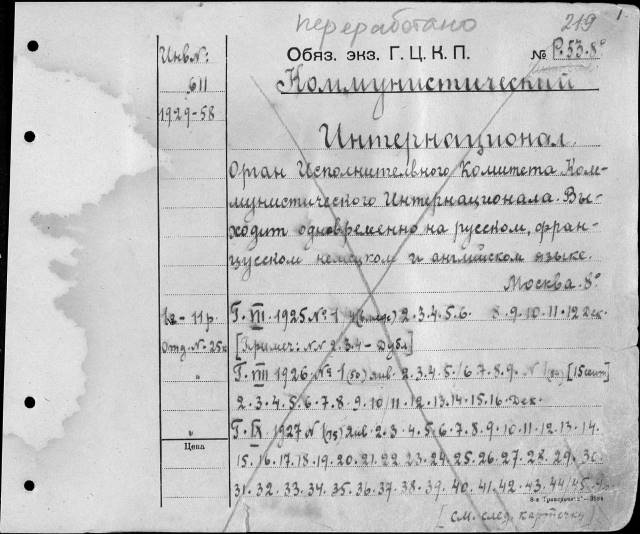 переработано
219
Инв№: Обяз. экз. Г. Ц. К. П. № Р.53.8°
611 Коммунистический
1929-58
Интернационал.
Орган Исполнительного Комитета Ком-
мунистического Интернационала. Вы-
ходит одновременно на русском, фран-
цусском немецком и английском языке.
Москва. 8°
11 р. Г. VII. 1925 № 1 2. 3. 4. 5. 6. 8. 9. 10. 11. 12 Дек.
Отд. №-25к [Примеч: №№ 2. 3. 4 - Дубл]
" Г. VIII 1926. № 1 (50) янв. 2. 3. 4. 5. /6 7. 8. 9. № 1 [15 сент]
2. 3. 4. 5. 6. 7. 8. 9. 10 /11. 12. 13. 14. 15. 16. Дек.
" Г. IX 1927 N (75) Янв. 2. 3. 4. 5. 6. 7. 8. 9. 10. 11. 12. 13. 14.
Цена
15. 16. 17. 18. 19. 20. 21. 22. 23. 24. 25. 26. 27. 28. 29. 30.
31. 32. 33. 34. 35. 36. 37. 38. 39. 40. 41. 42. 43. 44/45.
[см. след. карточку]